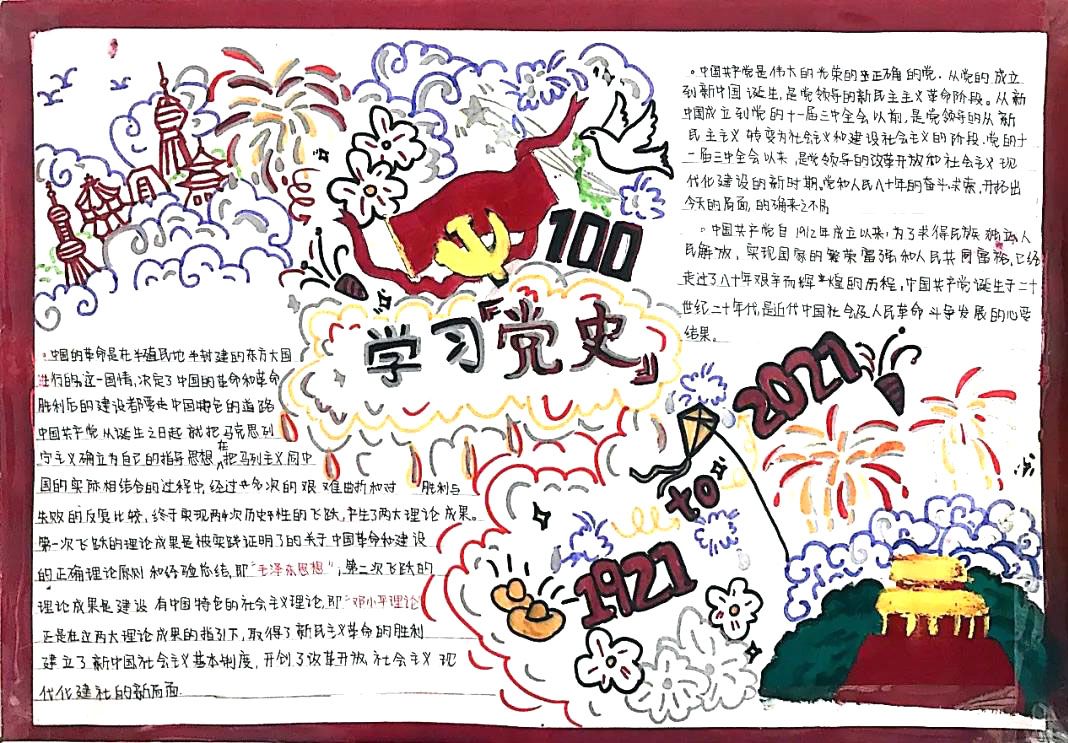 100
学习『党史』
2021
to
1921
。中国共产党是伟大的光荣的正确的党。从党的成立
到新中国诞生,是党领导的新民主主义革命阶段。从新
中国成立到党的十一届三中全会以前,是党领导的从新
民主主义转变为社会主义和建设社会主义的阶段,党的十
二届三中全会以来,是党领导的改革开放和社会主义现
代化建设的新时期,党和人民八十年的奋斗求索,开拓出
今天的局面,的确来之不易
。中国共产党自1912年成立以来,为了求得民族独立人
民解放,实现国家的繁荣富强和人民共同富裕,已经
走过了八十年艰辛而辉煌的历程,中国共产党诞生于二十
世纪二十年代,是近代中国社会及人民革命斗争发展的必要
结果。
。中国的革命是在半殖民地半封建的东方大国
进行的,这一国情,决定了中国的革命和革命
胜利后的建设都要走中国特色的道路
中国共产党从诞生之日起就把马克思列
宁主义确立为自己的指导思想,在把马列主义同中
国的实际相结合的过程中,经过多次的艰难曲折和对 胜利与
失败的反复比较,终于实现两次历史性的飞跃,产生了两大理论成果。
第一次飞跃的理论成果是被实践证明了的关于中国革命和建设
的正确理论原则和经验总结,即"毛泽东思想";第二次飞跃的
理论成果是建设有中国特色的社会主义理论,即"邓小平理论
正是在这两大理论成果的指引下,取得了新民主义革命的胜利
建立了新中国社会主义基本制度,开创了改革开放社会主义现
代化建社的新局面.